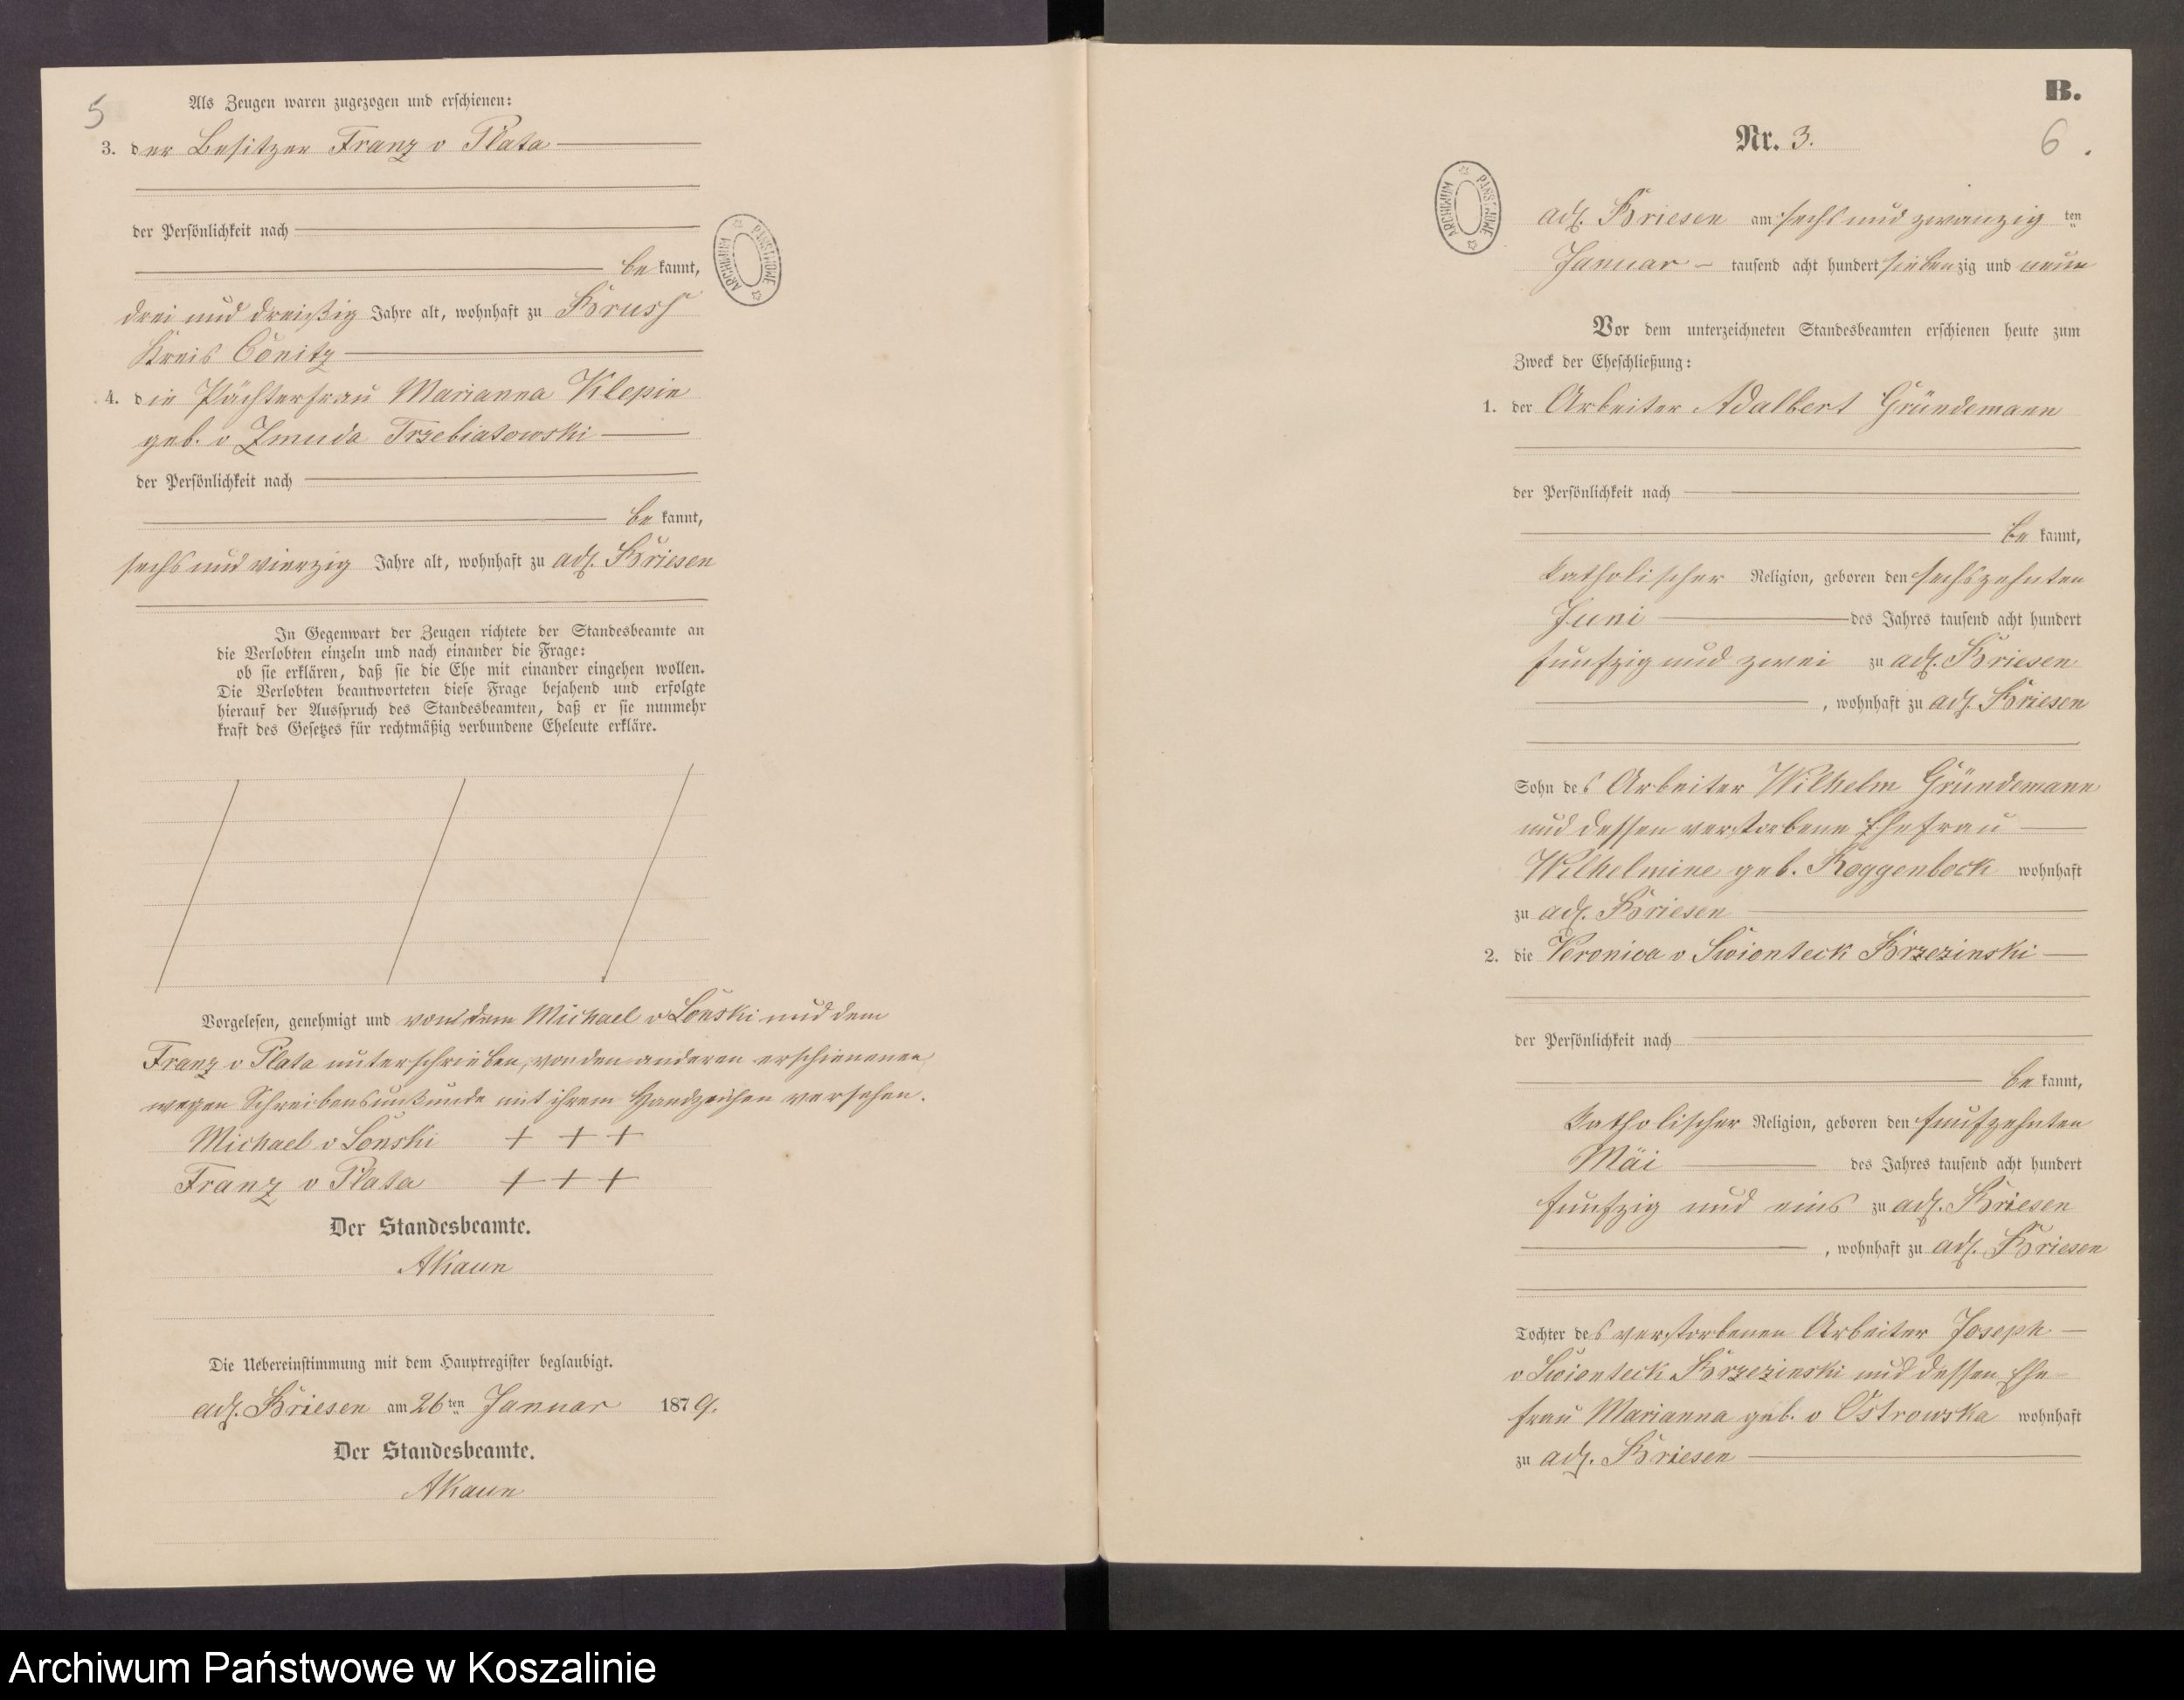 5
Als Zeugen waren zugezogen und erschienen:
3. der Besitzer Franz v Plata
der Persönlichkeit nach
be kannt,
drei und dreißig Jahre alt, wohnhaft zu Bruss
Kreis Conitz
4. die Pächterfrau Marianna Klepin
geb. v Zmuda Trzebiatowski
der Persönlichkeit nach
be kannt,
sechs und vierzig Jahre alt, wohnhaft zu adl. Briesen
In Gegenwart der Zeugen richtete der Standesbeamte an
die Verlobten einzeln und nach einander die Frage:
ob sie erklären, daß sie die Ehe mit einander eingehen wollen.
Die Verlobten beantworteten diese Frage bejahend und erfolgte
hierauf der Ausspruch des Standesbeamten, daß er sie nunmehr
kraft des Gesetzes für rechtmäßig verbundene Eheleute erkläre.
Vorgelesen, genehmigt und von dem Michael v Lonski und dem
Franz v Plata unterschrieben, von den anderen erschienenen
wegen Schreibensunkunde mit ihrem Handzeichen versehen.
Michael v Lonski + + +
Franz v Plata + + +
Der Standesbeamte.
AKaun
Die Uebereinstimmung mit dem Hauptregister beglaubigt.
adl. Briesen am 26ten Januar 1879.
Der Standesbeamte.
AKaun
ARCHIWUM PAŃSTWOWE
B.
Nr. 3.
6.
ARCHIWUM PAŃSTWOWE
adl. Briesen am sechs und zwanzig ten
Januar tausend acht hundert siebenzig und neun
Vor dem unterzeichneten Standesbeamten erschienen heute zum
Zweck der Eheschließung:
1. der Arbeiter Adalbert Gründemann
der Persönlichkeit nach
be kannt,
katholischer Religion, geboren den sechszehnten
Juni des Jahres tausend acht hundert
funfzig und zwei zu adl. Briesen
, wohnhaft zu adl. Briesen
Sohn des Arbeiter Wilhelm Gründemann
und dessen verstorbene Ehefrau
Wilhelmine geb. Roggenbock wohnhaft
zu adl. Briesen
2. die Veronica v Swionteck Brzezinski
der Persönlichkeit nach
be kannt,
katholischer Religion, geboren den funfzehnten
Mai des Jahres tausend acht hundert
funfzig und eins zu adl. Briesen
, wohnhaft zu adl. Briesen
Tochter des verstorbenen Arbeiter Joseph
v Swionteck Brzezinski und dessen Ehe
frau Marianna geb. v Ostrowska wohnhaft
zu adl. Briesen
Archiwum Państwowe w Koszalinie